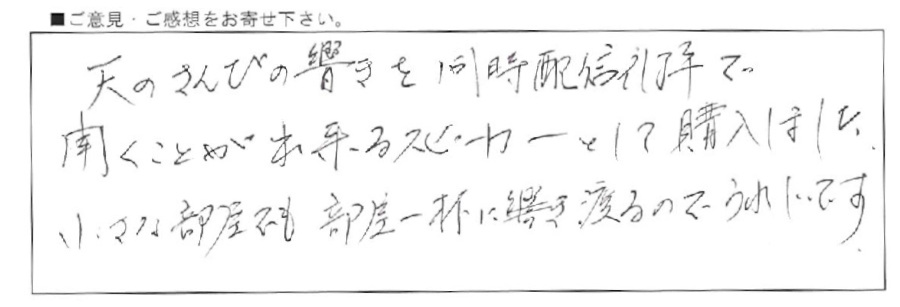 ■ご意見・ご感想をお寄せ下さい。
天のさんびの響きを同時配信礼拝で
聞くことが出来るスピーカーとして購入しました、
小さな部屋でも部屋一杯に響き渡るのでうれしいです